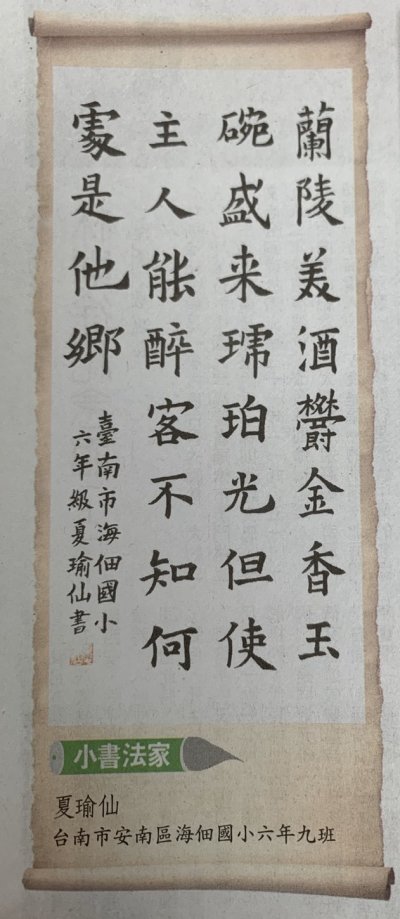 蘭陵美酒鬱金香玉
碗盛来琥珀光但使
主人能醉客不知何
處是他鄉
臺南市海佃國小
六年級夏瑜仙書
小書法家
夏瑜仙
台南市安南區海佃國小六年九班